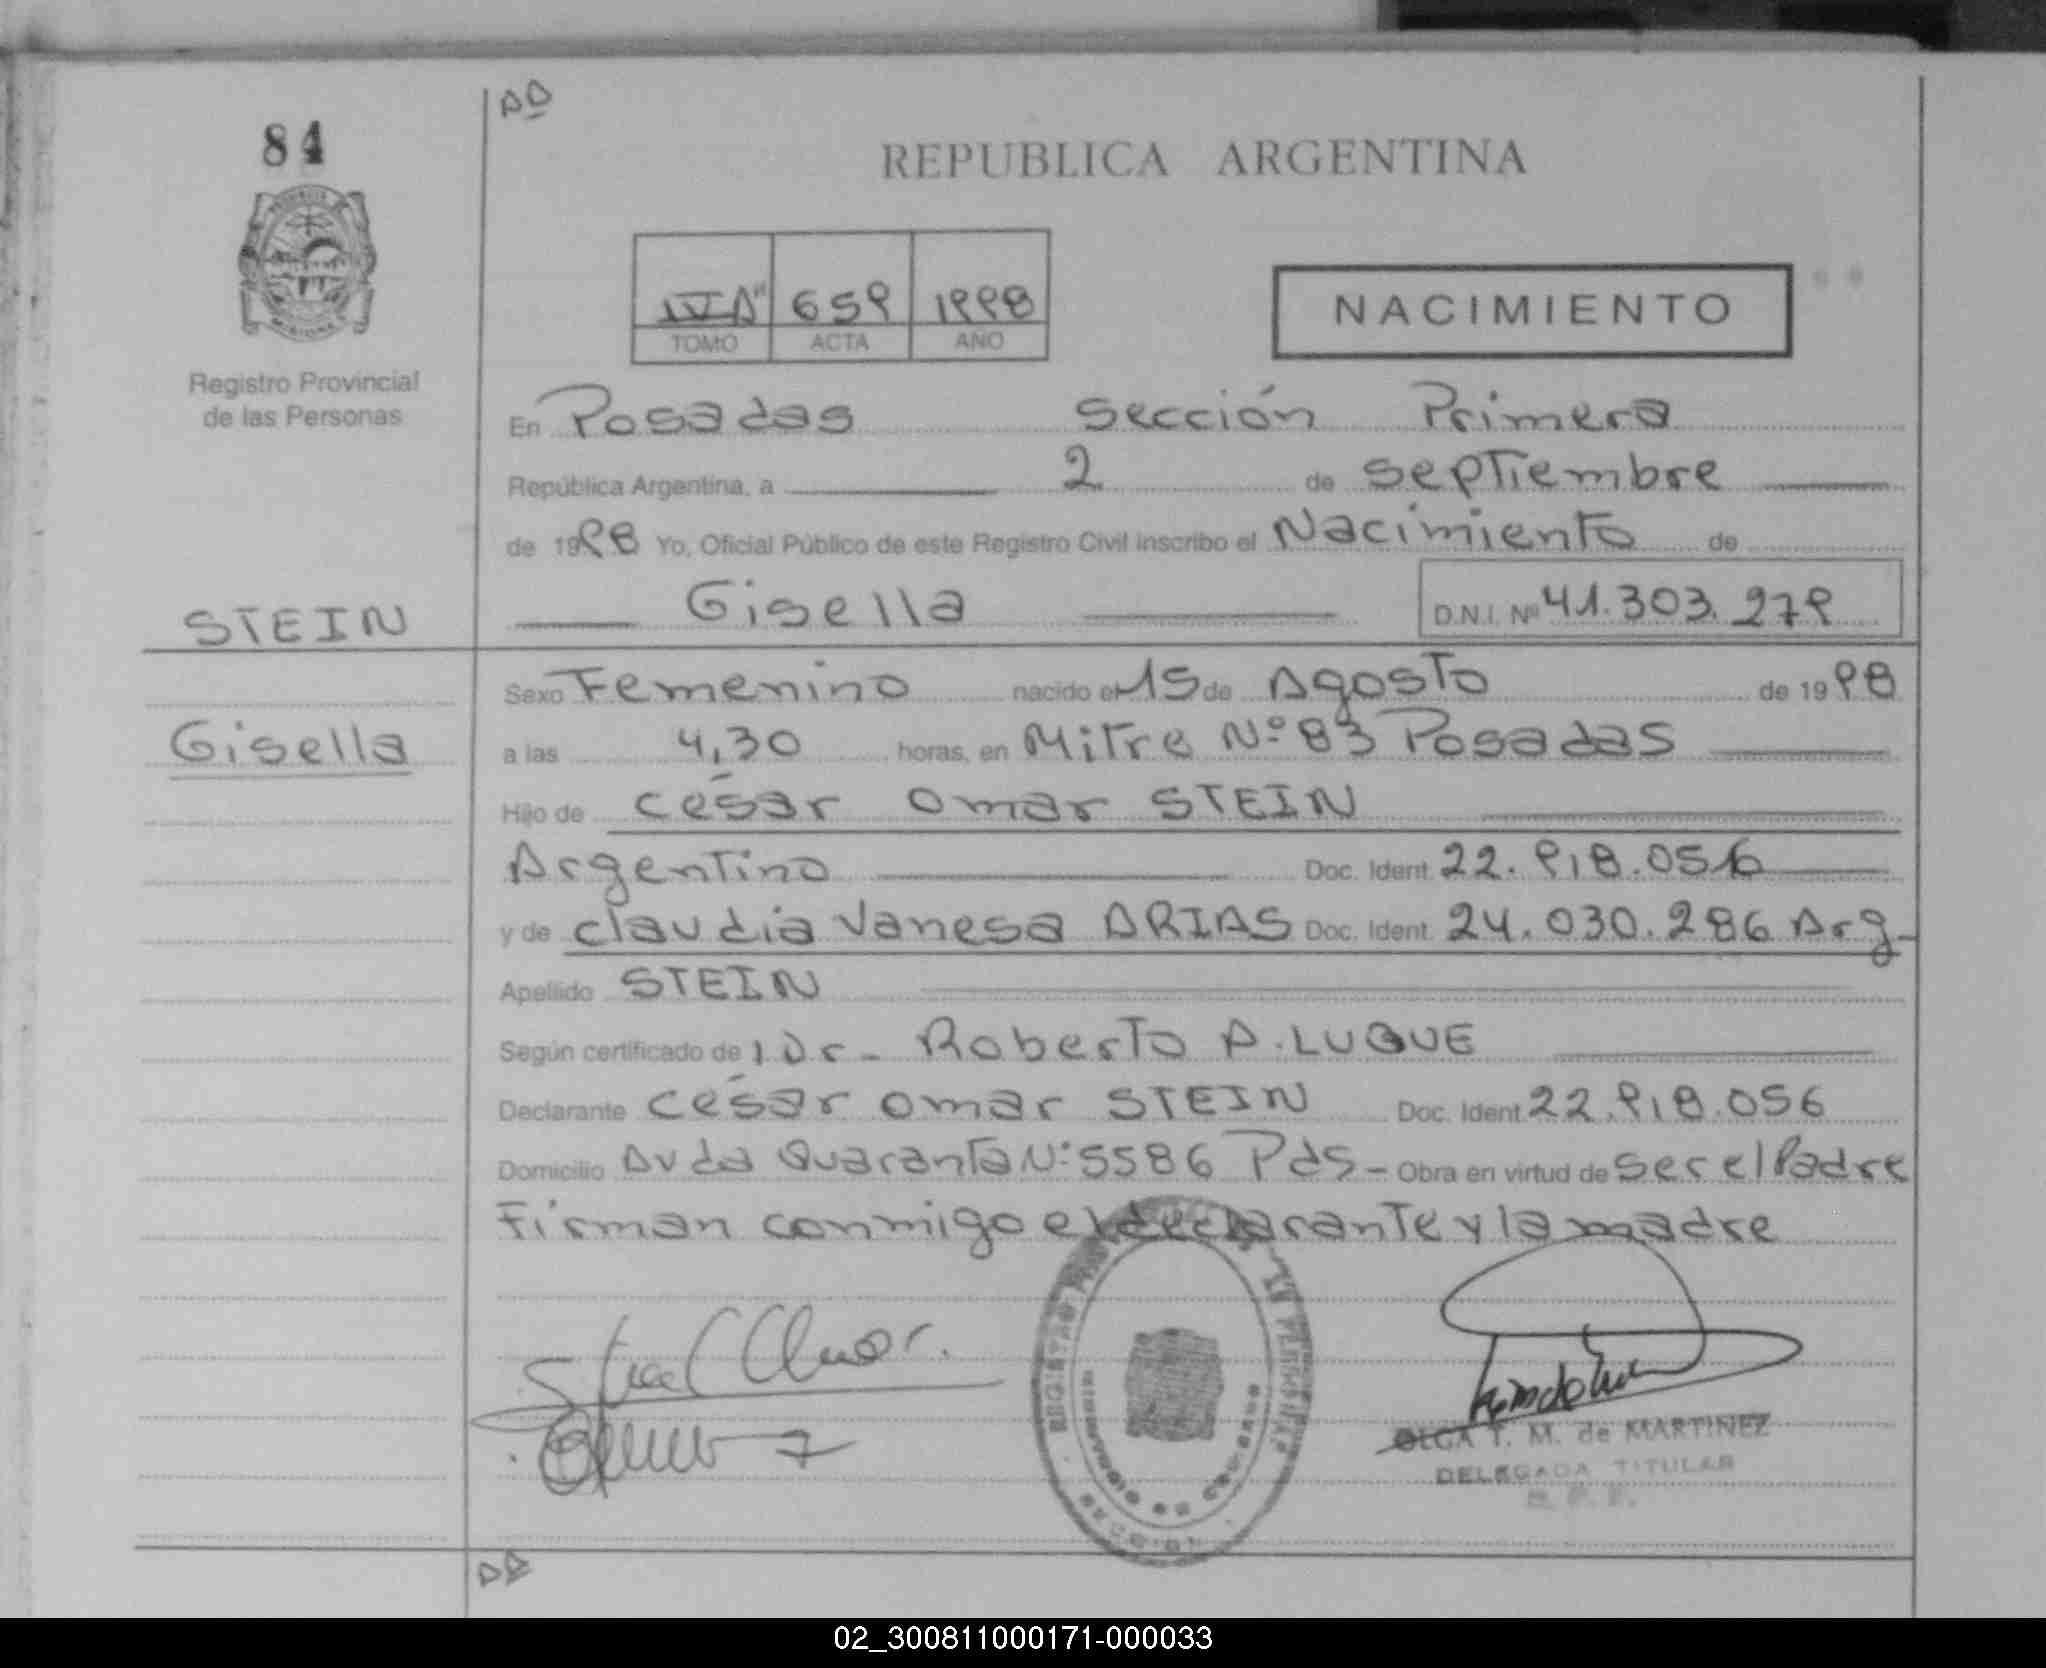 84
REPUBLICA ARGENTINA
IV "A" 659 1998
TOMO ACTA AÑO
NACIMIENTO
Registro Provincial
de las Personas
En Posadas Sección Primera
República Argentina, a 2 de septiembre
de 1998 Yo, Oficial Público de este Registro Civil inscribo el Nacimiento de
STEIN
Gisella D.N.I. Nº 41.303.279
Sexo Femenino nacido el 15 de Agosto de 1998
Gisella
a las 4,30 horas, en Mitre Nº 83 Posadas
Hijo de César Omar STEIN
Argentino Doc. Ident. 22.918.056
y de Claudia Vanesa ARIAS Doc. Ident. 24.030.286 Arg-
Apellido STEIN
Según certificado de l Dr- Roberto A. LUQUE
Declarante César Omar STEIN Doc. Ident. 22.918.056
Domicilio Avda Quaranta Nº 5586 Pds- Obra en virtud de ser el Padre
Firman conmigo el declarante y la madre
OLGA T. M. de MARTINEZ
DELEGADA TITULAR
02_300811000171-000033